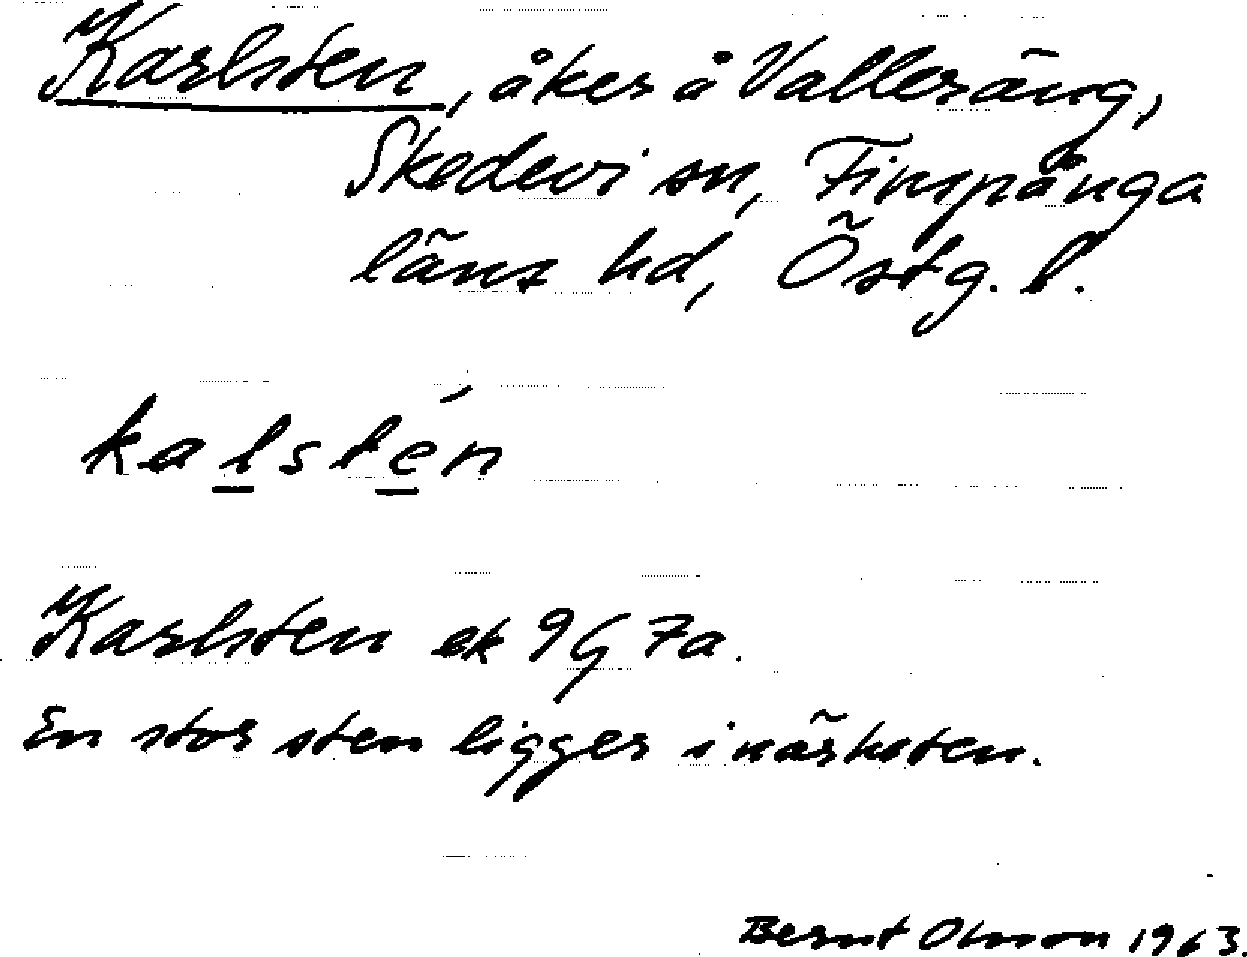 Karlsten, åker å Valleräng,
Skedevi sn, Finspånga
läns hd, Östg. l.
kalstén
Karlsten ek 9G 7a.
En stor sten ligger i närheten.
Bernt Olsson 1963.